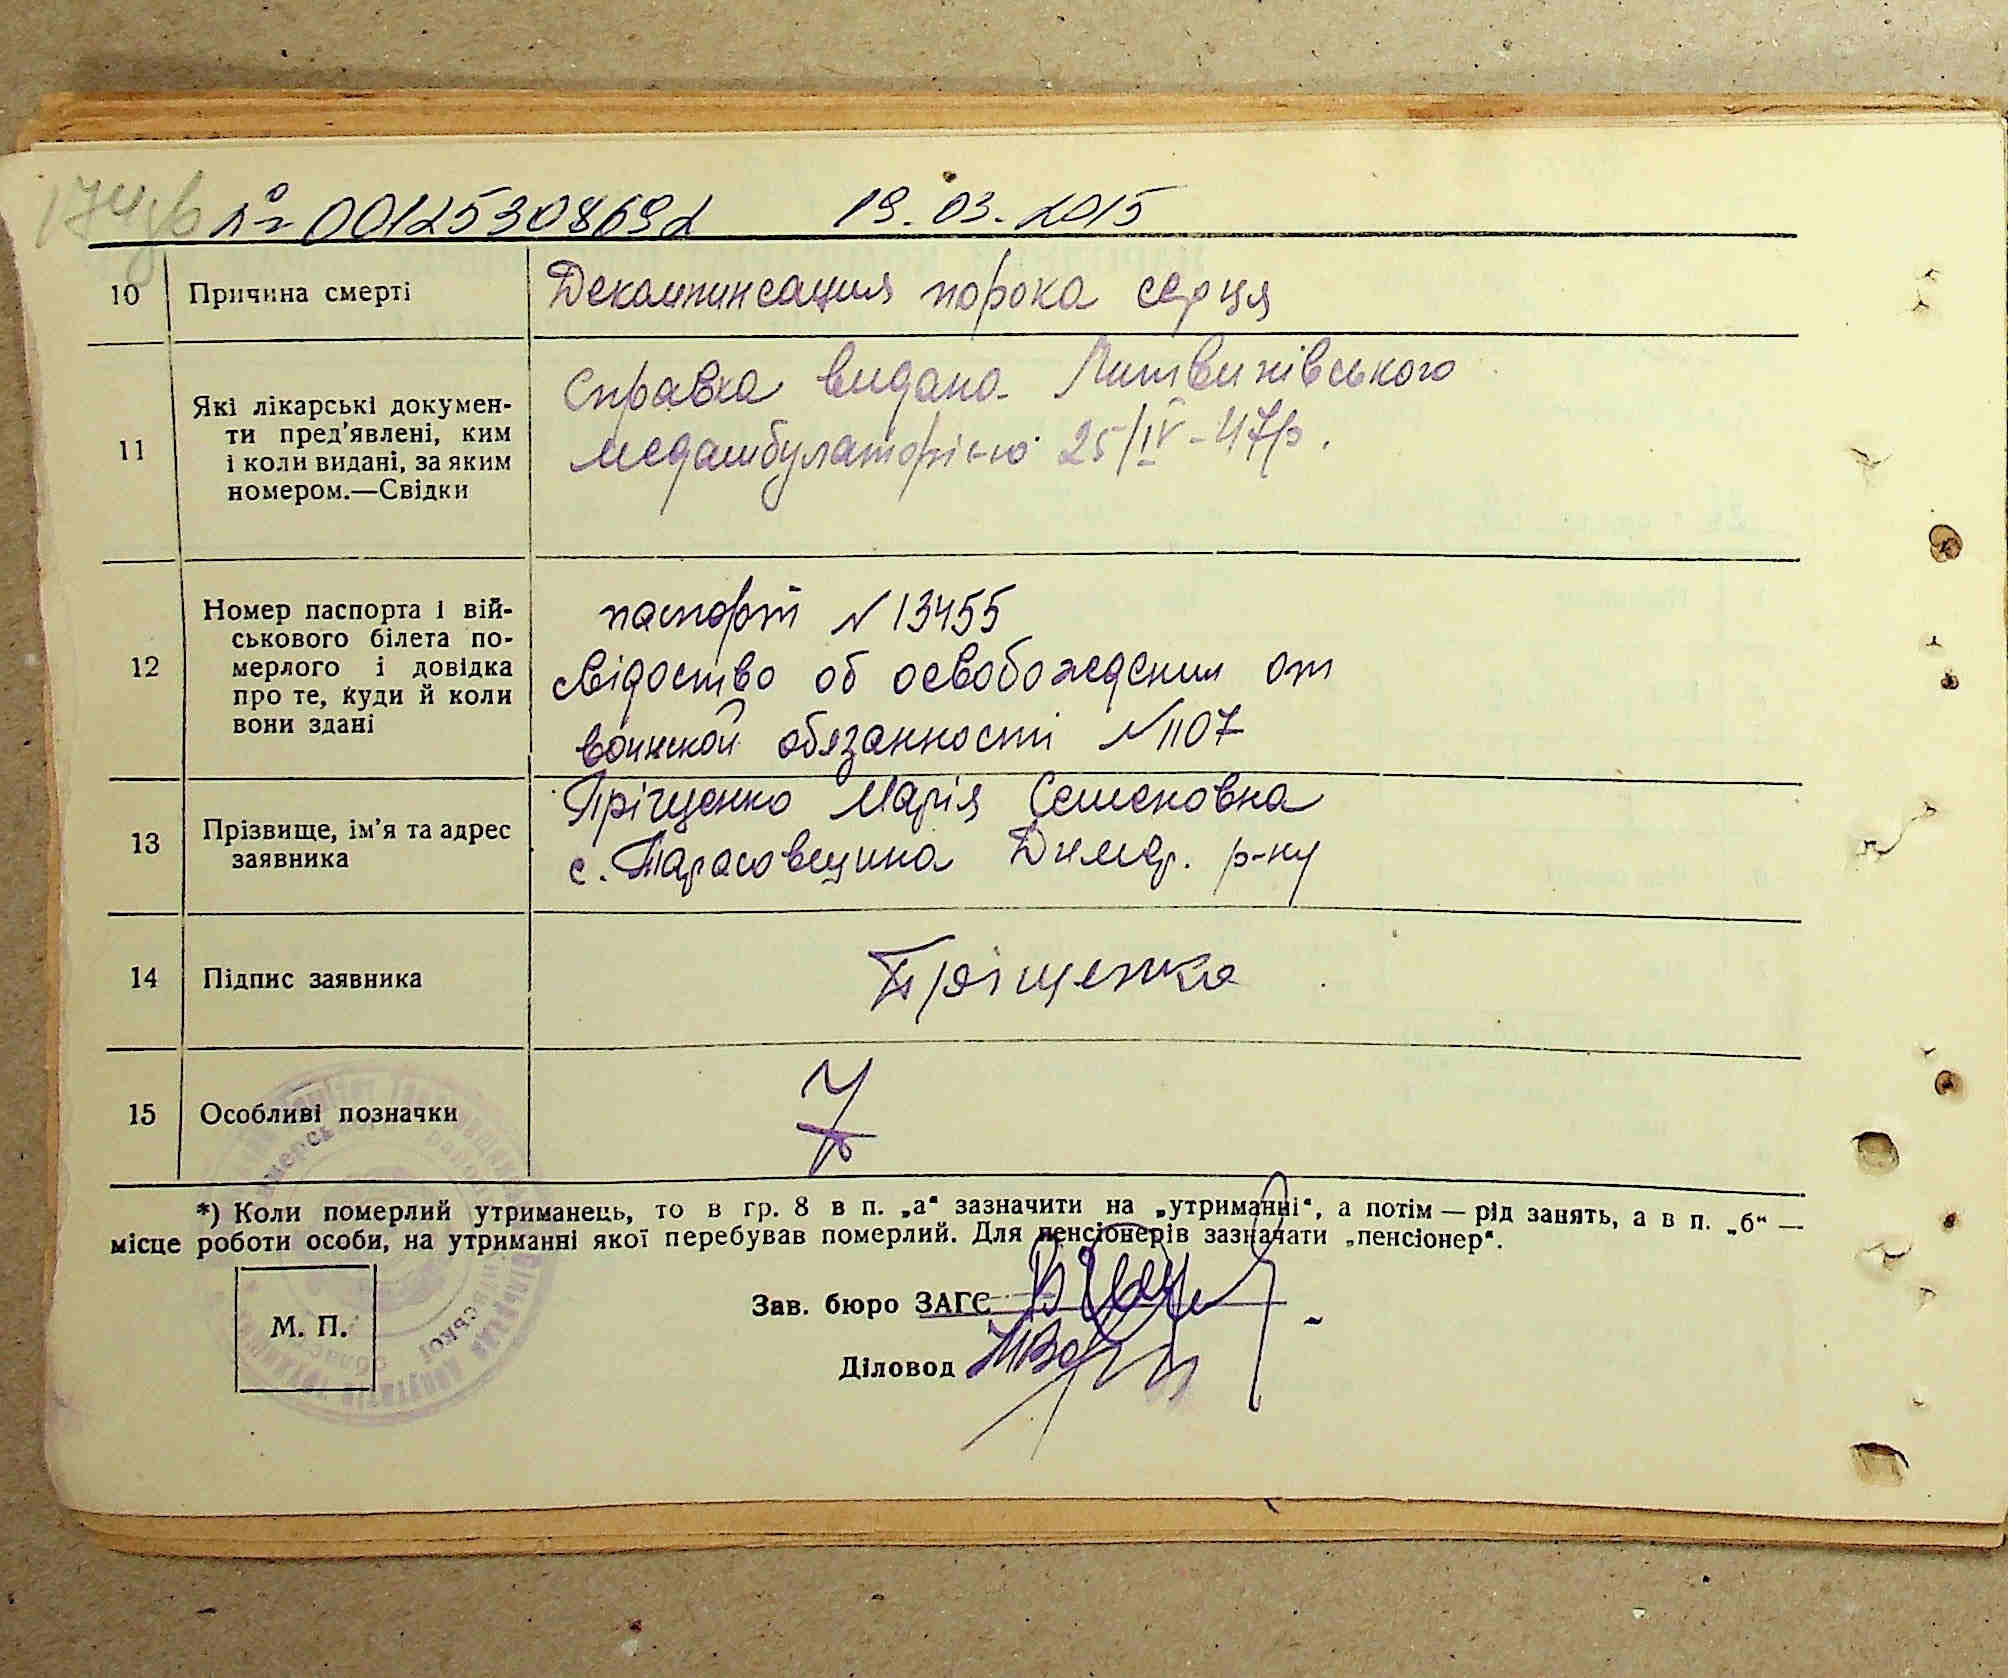 174зв № 00125308692 19.03.2015
10 Причина смерті Декомпинсация порока серця
11 Які лікарські докумен-
ти пред'явлені, ким
і коли видані, за яким
номером.—Свідки
Справка видана Литвинівського
медамбулаторією 25/IV-47р.
12 Номер паспорта і вій-
ськового білета по-
мерлого і довідка
про те, куди й коли
вони здані
паспорт N 13455
свідоство об освобождении от
воинской обязанности N 1107
13 Прізвище, ім'я та адрес
заявника
Пріщенко Марія Семеновна
с. Тарасовещина Димер. р-ну
14 Підпис заявника Пріщенко
15 Особливі позначки
*) Коли померлий утриманець, то в гр. 8 в п. „а“ зазначити на „утриманні“, а потім — рід занять, а в п. „б“ —
місце роботи особи, на утриманні якої перебував померлий. Для пенсіонерів зазначати „пенсіонер“.
Зав. бюро ЗАГС
М. П.
Діловод